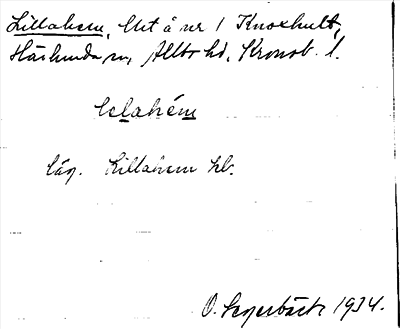 Lillahem, lht å nr 1 Knoxhult,
Härlunda sn, Allbo hd, Kronob. l.
lelahém
läg. Lillahem kb.
O. Segerbäck 1934.